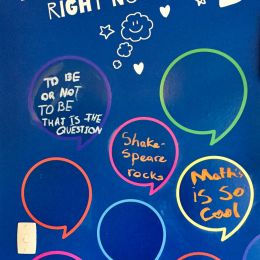 RIGHT NO
TO BE
OR NOT
TO BE
THAT IS THE
QUESTION
Shake-
speare
rocks
Maths
is so
cool